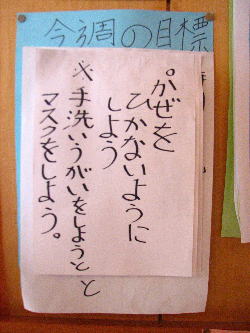 今週の目標
°かぜを
ひかないように
しよう
※手洗いうがいをしようと
マスクをしよう。